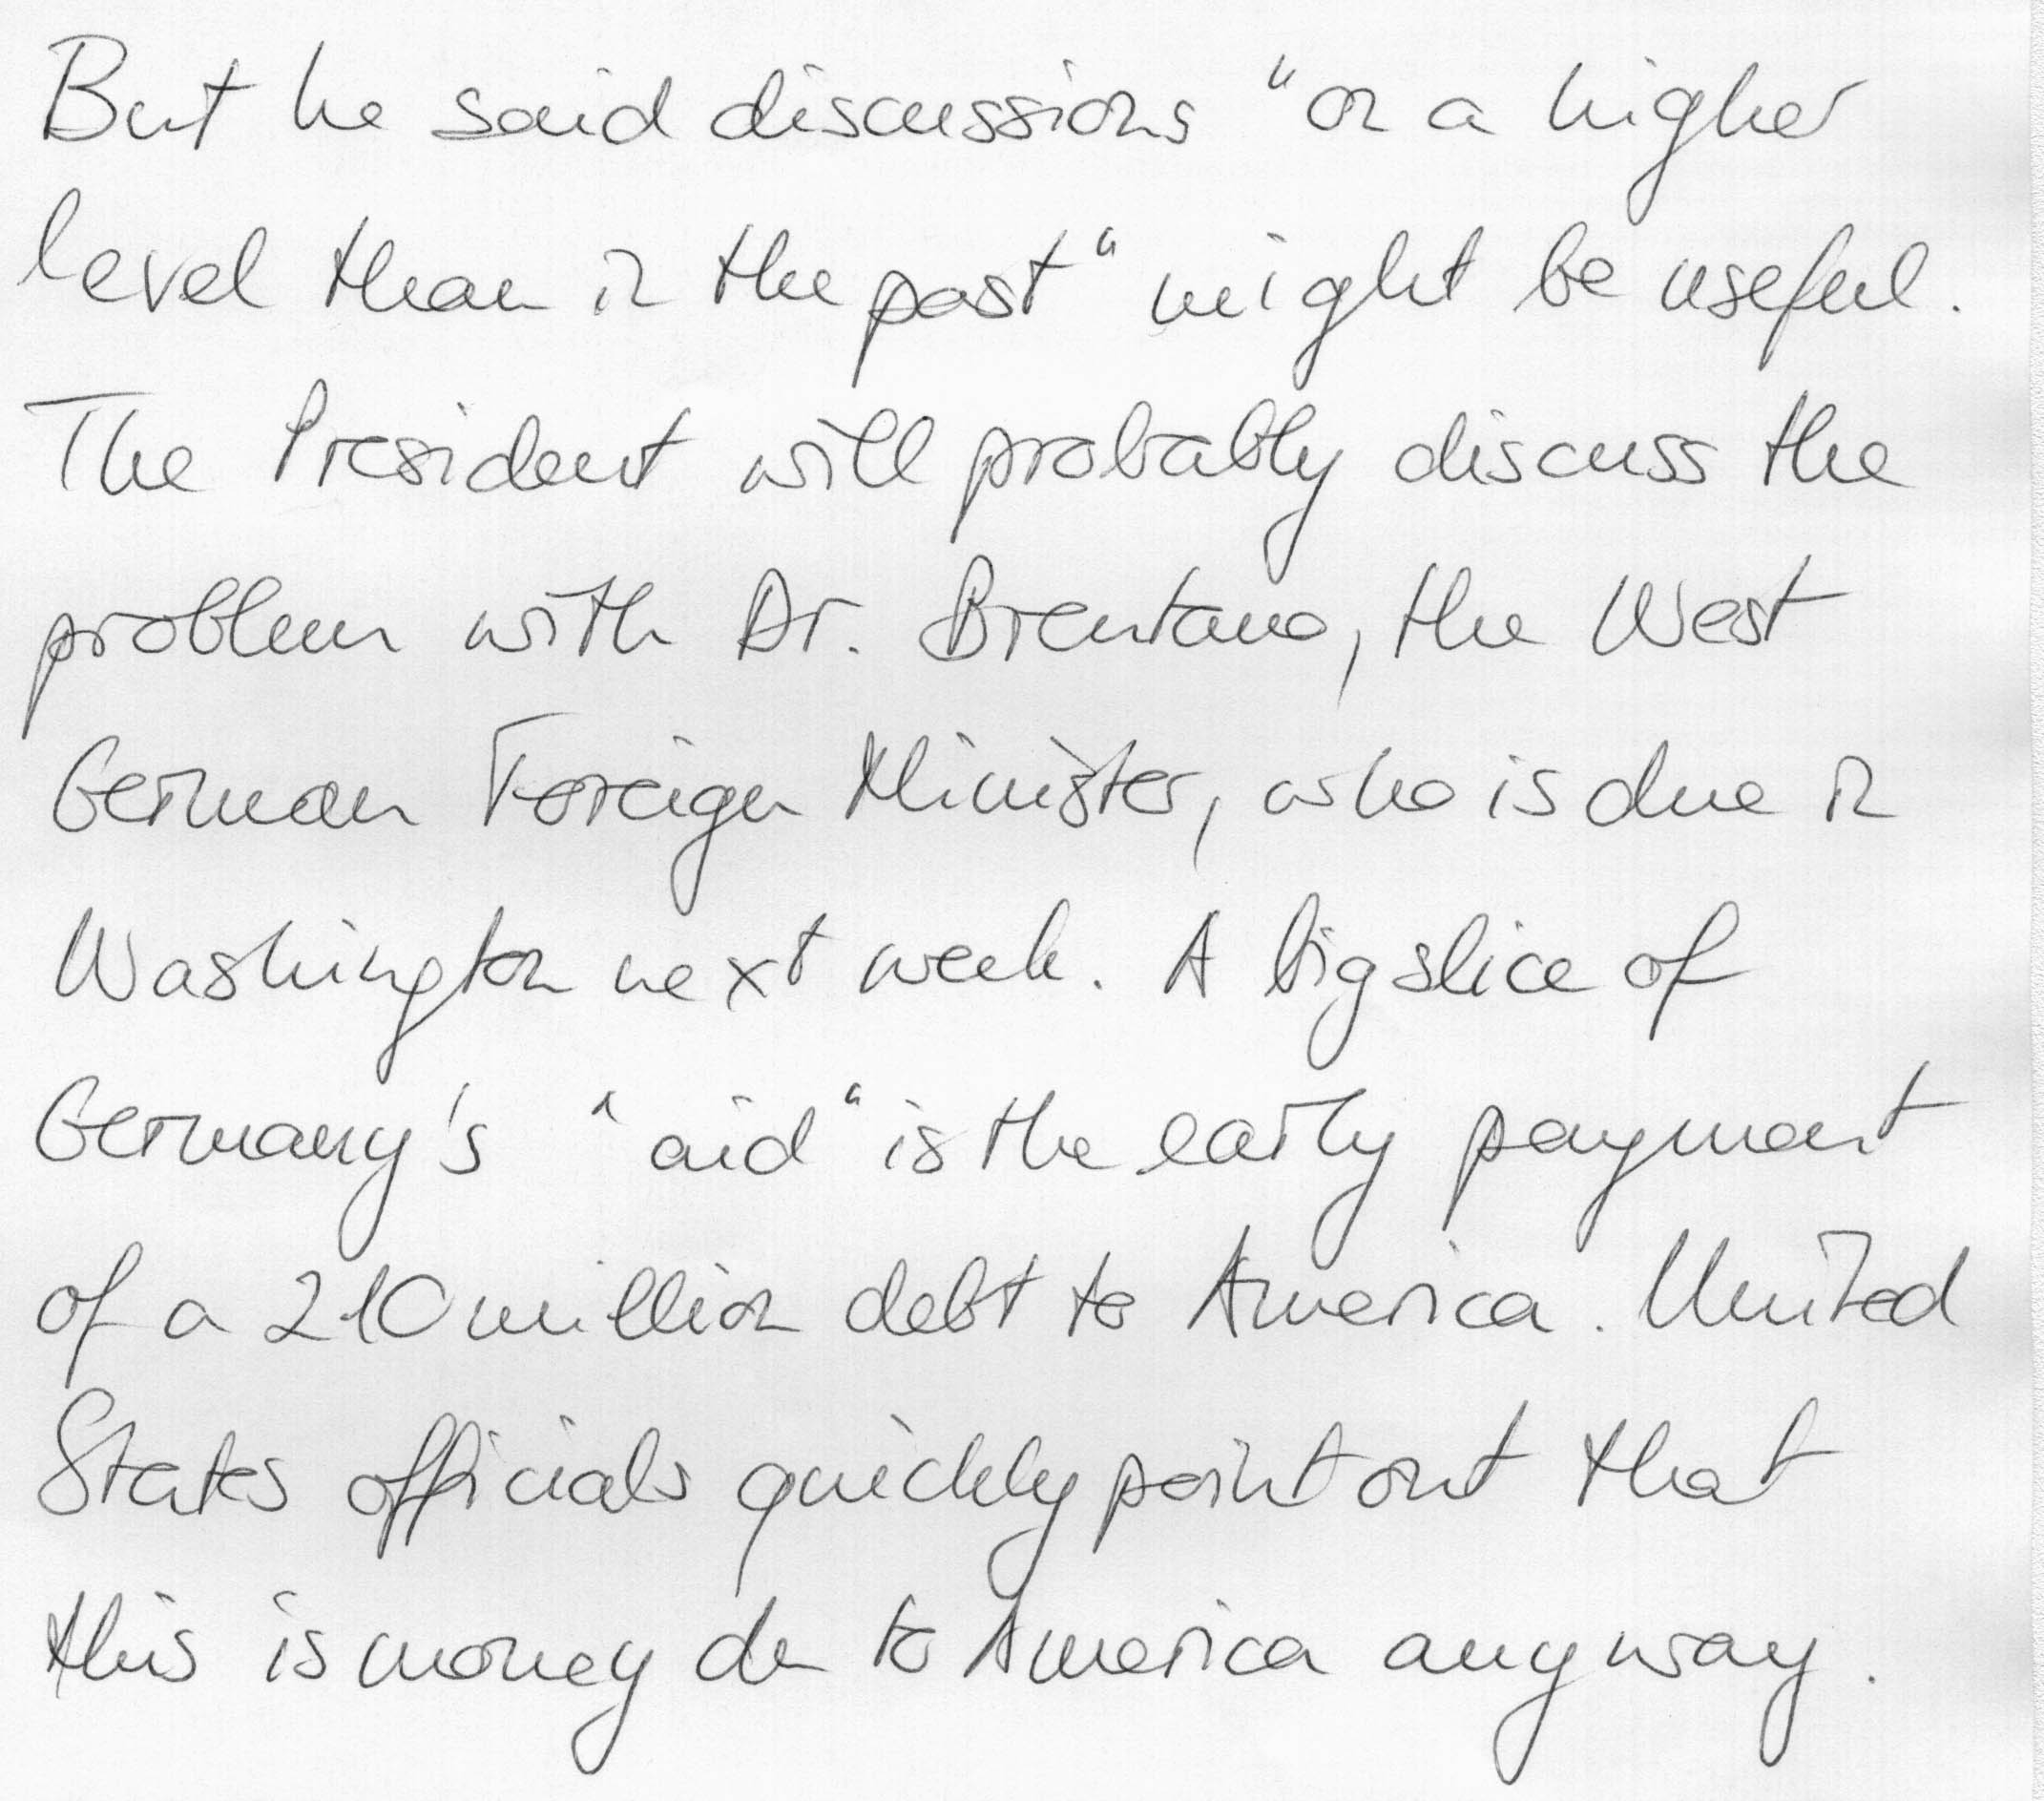 But he said discussions "on a higher
level than in the past" might be useful.
The President will probably discuss the
problem with Dr. Brentano, the West
German Foreign Minister, who is due in
Washington next week. A big slice of
Germany's "aid" is the early payment
of a 210 million debt to America. United
States officials quickly point out that
this is money du to America anyway.